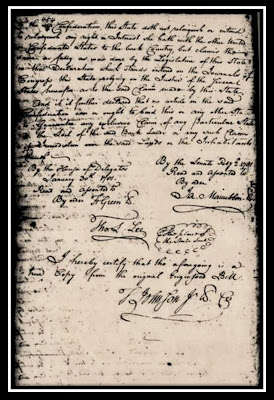 Confederation, this State doth not relinquish or intend
to relinquish any right or Interest she hath with the other United
or Confederated States to the back Country, but claims the
same as fully as was done by the Legislature of this State
in their Declaration which stands entered on the Journals of
Congress this State relying on the Justice of the several
States hereafter as to the said Claim made by this State
And it is further declared that no article in the said
Confederation can or ought to bind this or any other State
to any exclusive Claim of any particular State
to the Soil of the said Back Lands or any such Claim
of Jurisdiction over the said Lands or the Inhabitants
thereof
By the House of Delegates
January 30th 1781
Read and assented to
By order F Green Ck
By the Senate Feby 2d 1781
Read and assented to
By order
Ja. Maccubbin
Tho. S. Lee
I hereby certify that the aforegoing is a
true Copy from the original Engrossed Bill
T Johnson Jr